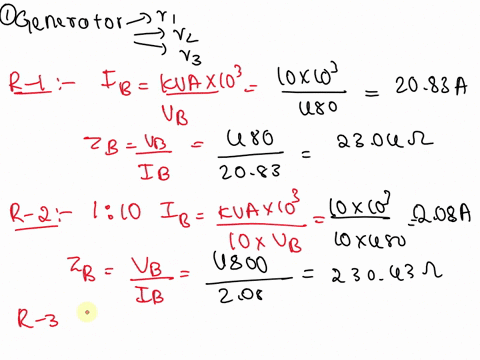 ① Generator → r1
→ r2
→ r3
R-1 :- IB = KVA×10³/VB = 10×10³/480 = 20.83 A
ZB = VB/IB = 480/20.83 = 23.04 Ω
R-2 :- 1:10 IB = KVA×10³/10×VB = 10×10³/10×480 = 2.08 A
ZB = VB/IB = 4800/2.08 = 230.43 Ω
R-3